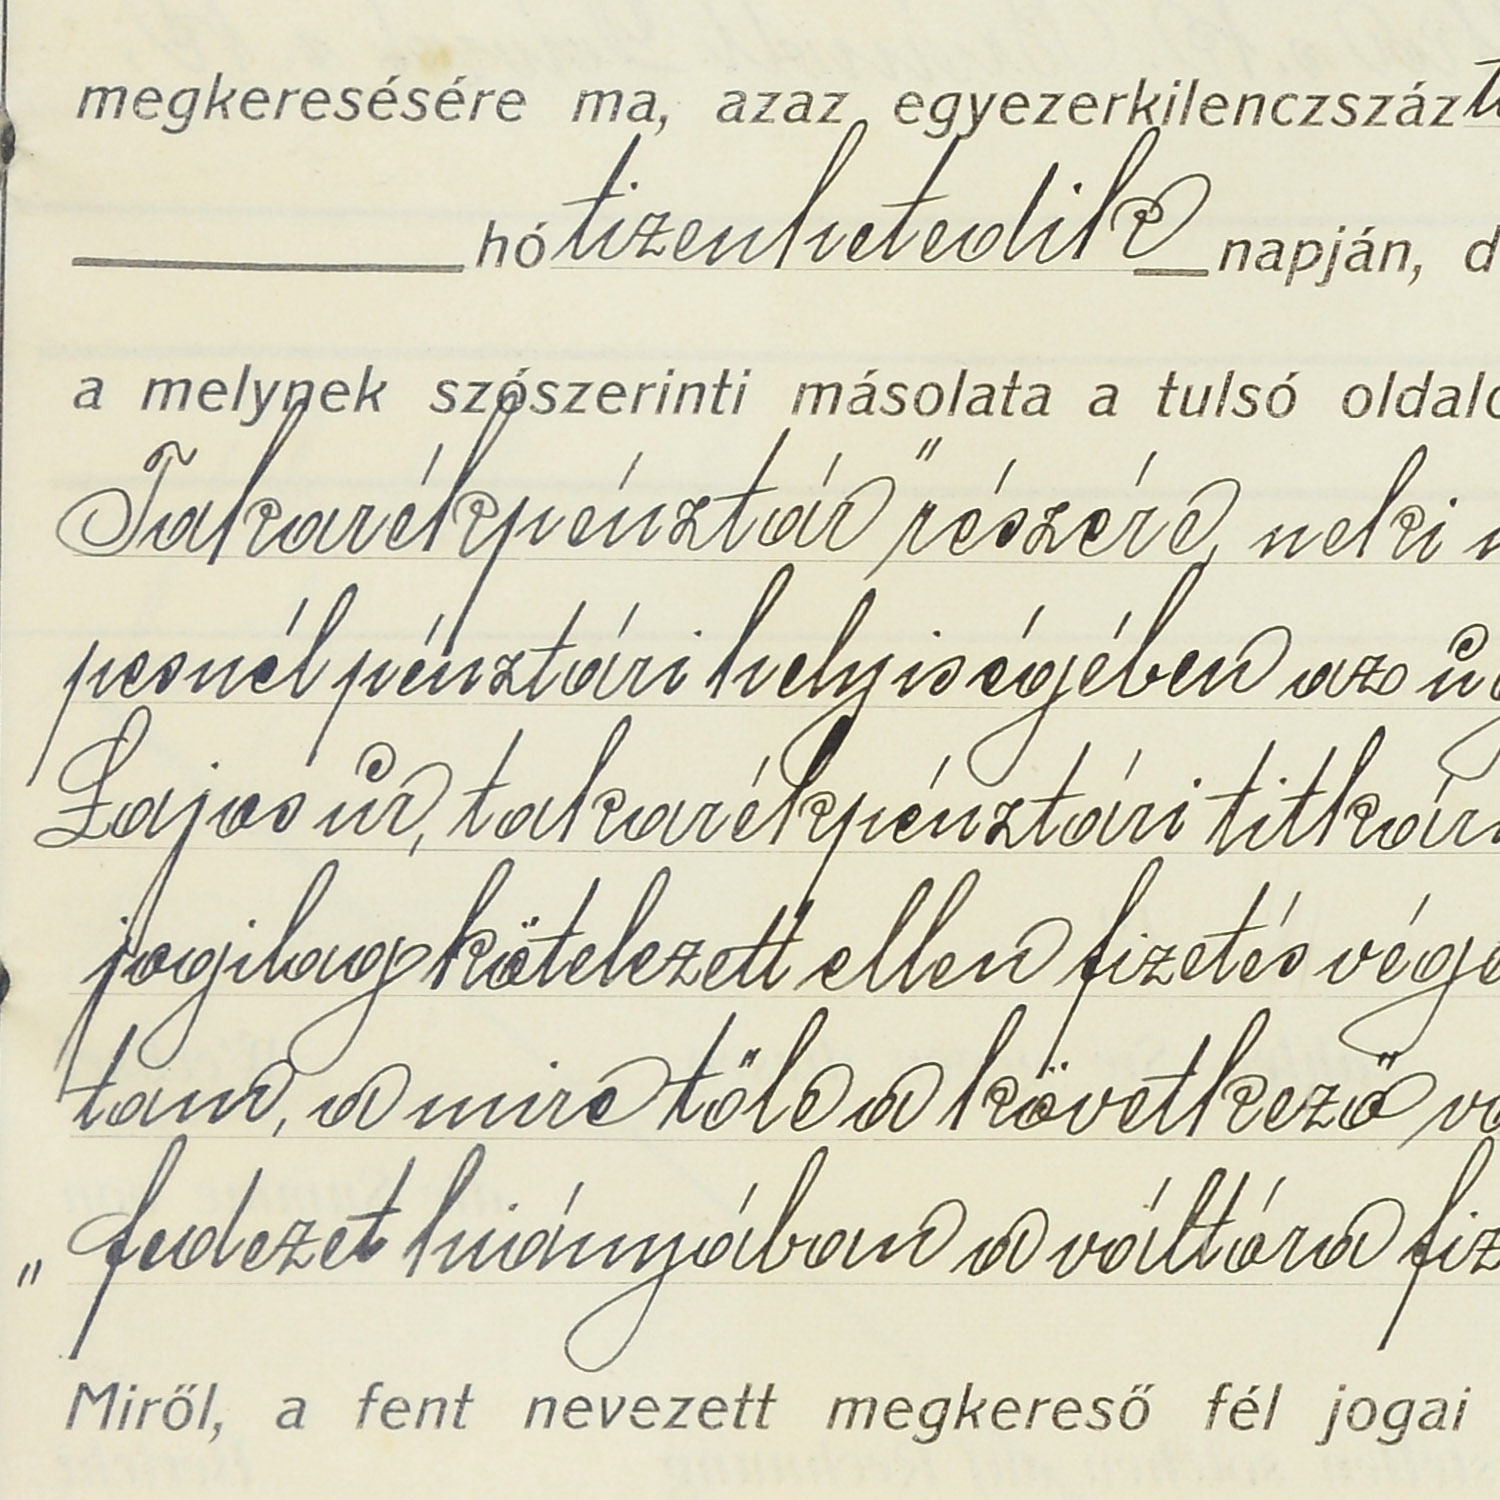 megkeresésére ma, azaz egyezerkilenczszáz
hó tizenhetedik napján, d
a melynek szószerinti másolata a tulsó oldalo
Takarékpénztár" részére, neki
pesnél pénztári helyiségében az üg
Lajos úr, takarékpénztári titkár
jogilag kötelezett ellen fizetés vége
tam, a mire tőle a következő vá
„ fedezet hiányában a váltóra fiz
Miről, a fent nevezett megkereső fél jogai